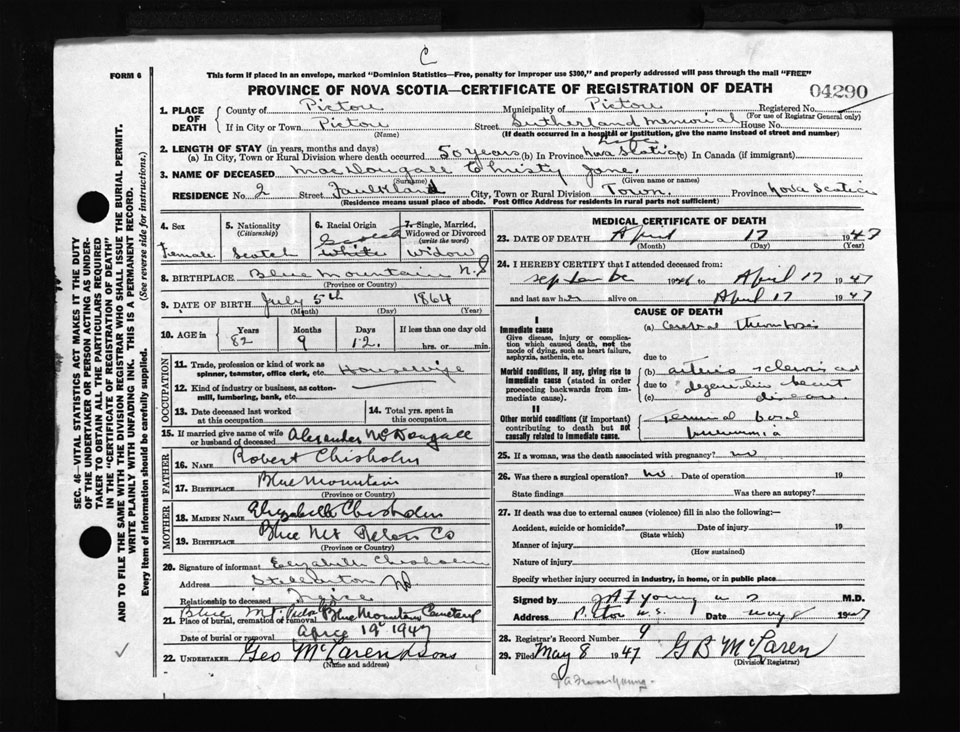 C
FORM 6
This form if placed in an envelope, marked "Dominion Statistics—Free, penalty for improper use $300," and properly addressed will pass through the mail "FREE"
PROVINCE OF NOVA SCOTIA—CERTIFICATE OF REGISTRATION OF DEATH
04290
1. PLACE OF DEATH
County of Pictou Municipality of Pictou Registered No.
(For use of Registrar General only)
If in City or Town Pictou Street Sutherland Memorial House No.
(Name) (If death occurred in a hospital or institution, give the name instead of street and number)
2. LENGTH OF STAY (in years, months and days)
(a) In City, Town or Rural Division where death occurred 50 years (b) In Province Life Nova Scotia (c) In Canada (if immigrant)
3. NAME OF DECEASED MacDougall Christy Jane.
(Surname) (Given name or names)
RESIDENCE No. 2 Street Faulkland City, Town or Rural Division Town. Province Nova Scotia
(Residence means usual place of abode. Post Office Address for residents in rural parts not sufficient)
4. Sex
Female
5. Nationality
(Citizenship)
Scotch
6. Racial Origin
Scotch
white
7. Single, Married, Widowed or Divorced
(write the word)
Widow
8. BIRTHPLACE Blue Mountain N.S
(Province or Country)
9. DATE OF BIRTH July 5th 1864
(Month) (Day) (Year)
10. AGE in
Years Months Days If less than one day old
82 9 12. hrs. or min.
OCCUPATION
11. Trade, profession or kind of work as spinner, teamster, office clerk, etc. Housewife
12. Kind of industry or business, as cotton-mill, lumbering, bank, etc.
13. Date deceased last worked at this occupation
14. Total yrs. spent in this occupation
15. If married give name of wife or husband of deceased Alexander McDougall
FATHER
16. NAME Robert Chisholm
17. BIRTHPLACE Blue Mountain
(Province or Country)
MOTHER
18. MAIDEN NAME Elizabeth Chisholm
19. BIRTHPLACE Blue Mt Co
(Province or Country)
20. Signature of informant Elizabeth Chisholm
Address Stellarton NS
Relationship to deceased
Blue Mt. Blue Mountain Cemetery
21. Place of burial, cremation or removal
Date of burial or removal April 19 1947
22. UNDERTAKER Geo McLaren & sons
(Name and address)
MEDICAL CERTIFICATE OF DEATH
23. DATE OF DEATH April 17 1947
(Month) (Day) (Year)
24. I HEREBY CERTIFY that I attended deceased from:
September 1946 to April 17 1947
and last saw her alive on April 17 1947
CAUSE OF DEATH
I
Immediate cause
Give disease, injury or complication which caused death, not the mode of dying, such as heart failure, asphyxia, asthenia, etc.
(a) Cerebral Thrombosis
due to
Morbid conditions, if any, giving rise to immediate cause (stated in order proceeding backwards from immediate cause).
(b) arterio sclerosis and
due to degenerative heart
(c) disease
II
Other morbid conditions (if important) contributing to death but not causally related to immediate cause.
Terminal
pneumonia
25. If a woman, was the death associated with pregnancy? no
26. Was there a surgical operation? no. Date of operation 19
State findings Was there an autopsy?
27. If death was due to external causes (violence) fill in also the following:—
Accident, suicide or homicide? Date of injury 19
(State which)
Manner of injury
(How sustained)
Nature of injury
Specify whether injury occurred in industry, in home, or in public place
Signed by J A F Young M.D.
Address Pictou N.S. Date May 8 1947
28. Registrar's Record Number 9
29. Filed May 8 1947 G B McLaren
(Division Registrar)
SEC. 46—VITAL STATISTICS ACT MAKES IT THE DUTY
OF THE UNDERTAKER OR PERSON ACTING AS UNDER-
TAKER TO OBTAIN ALL THE PARTICULARS REQUIRED
IN THE "CERTIFICATE OF REGISTRATION OF DEATH"
AND TO FILE THE SAME WITH THE DIVISION REGISTRAR WHO SHALL ISSUE THE BURIAL PERMIT.
WRITE PLAINLY WITH UNFADING INK. THIS IS A PERMANENT RECORD.
Every item of information should be carefully supplied. (See reverse side for instructions.)